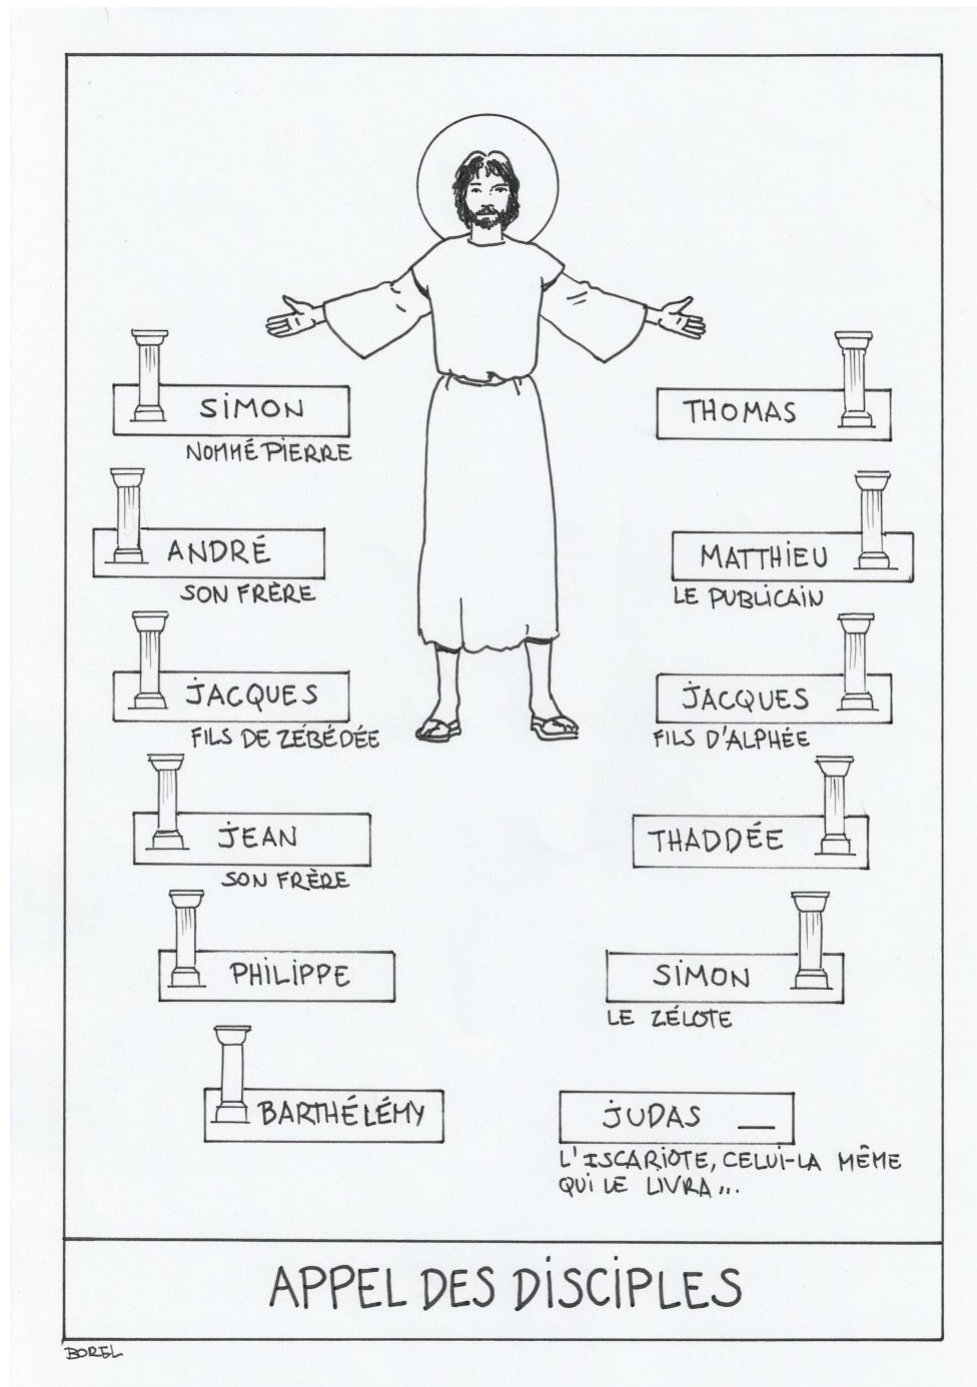 SIMON
NOMMÉ PIERRE
ANDRÉ
SON FRÈRE
JACQUES
FILS DE ZÉBÉDÉE
JEAN
SON FRÈRE
PHILIPPE
BARTHÉLÉMY
THOMAS
MATTHIEU
LE PUBLICAIN
JACQUES
FILS D'ALPHÉE
THADDÉE
SIMON
LE ZÉLOTE
JUDAS
L'ISCARIOTE, CELUI-LA MÊME
QUI LE LIVRA...
APPEL DES DISCIPLES
BOREL